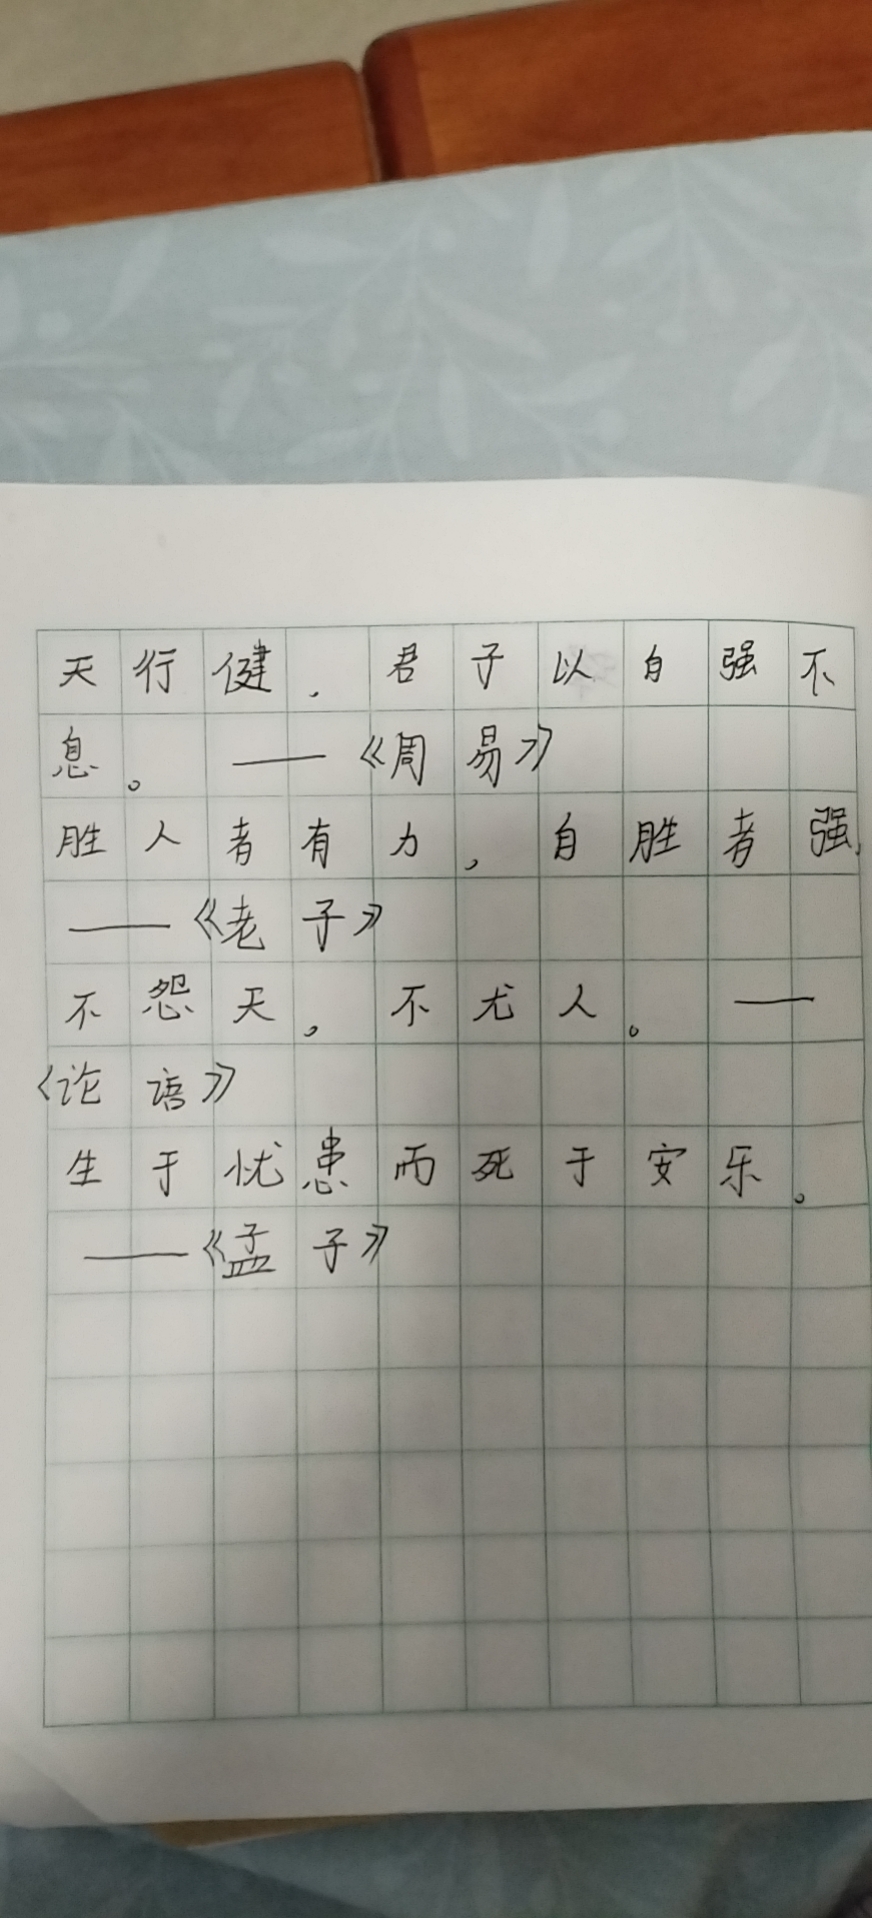 天行健，君子以自强不
息。——《周易》
胜人者有力，自胜者强，
——《老子》
不怨天，不尤人。——
《论语》
生于忧患而死于安乐。
——《孟子》